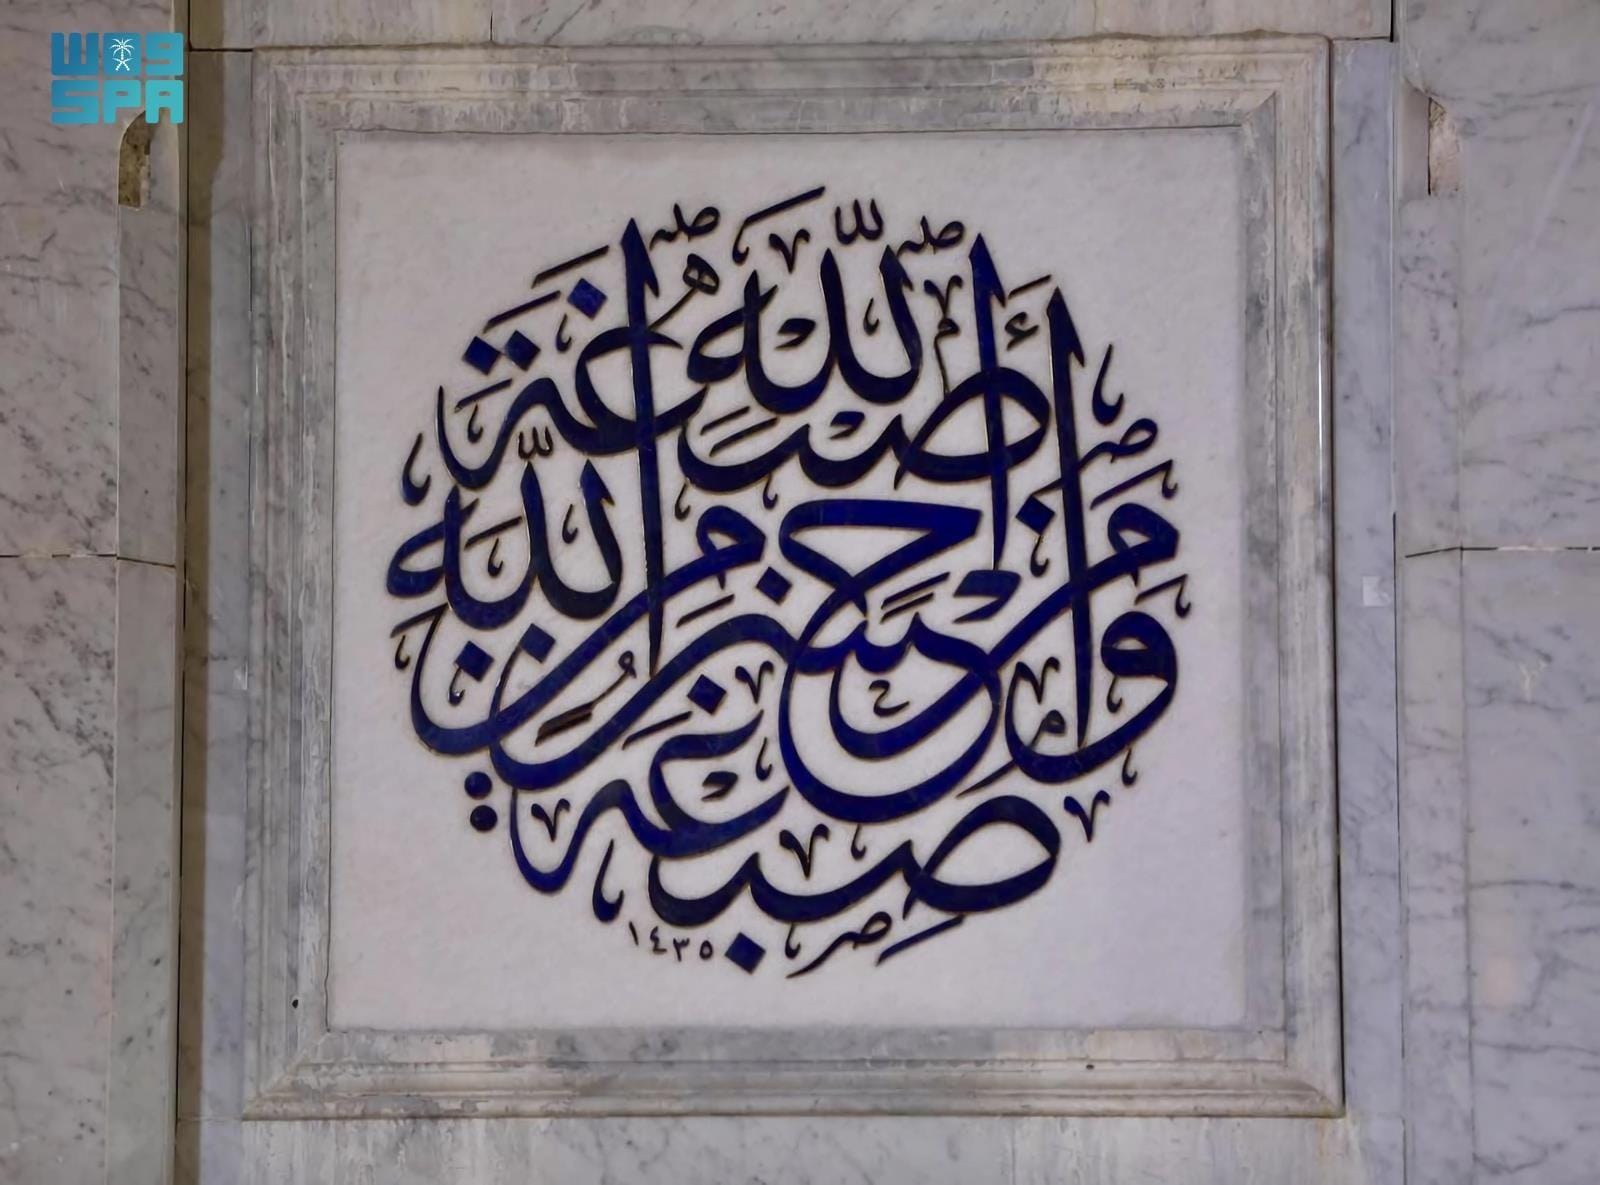 واس
SPA
صِبْغَةَ اللَّهِ وَمَنْ أَحْسَنُ مِنَ اللَّهِ صِبْغَةً
١٤٣٥